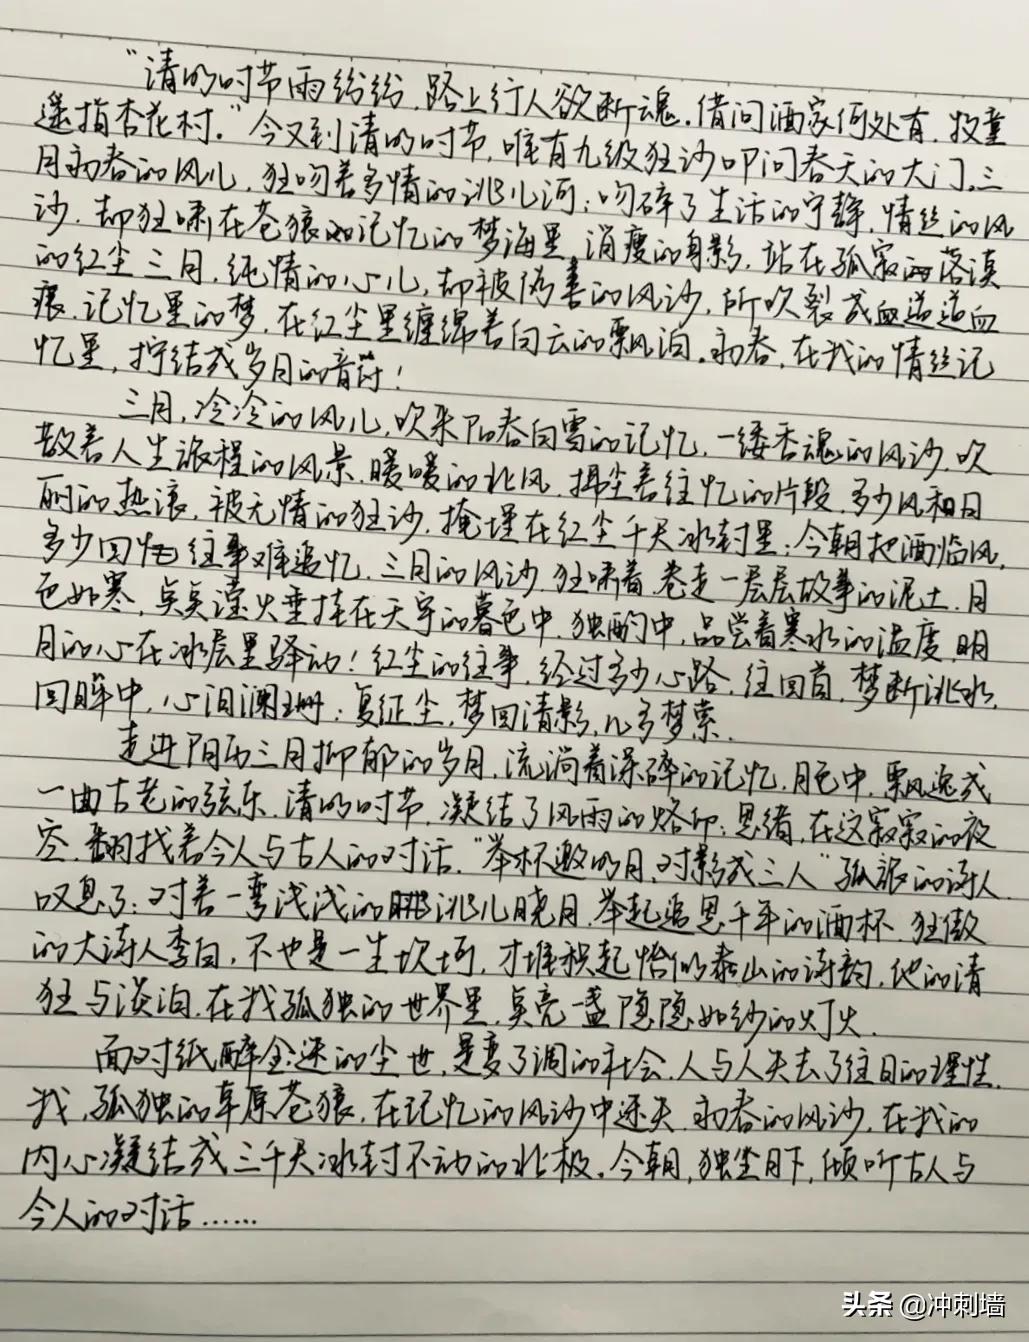 “清明时节雨纷纷，路上行人欲断魂。借问酒家何处有，牧童
遥指杏花村。”今又到清明时节，唯有九级狂沙叩问春天的大门。三
月初春的风儿，狂吻着多情的洮儿河；吻碎了生活的宁静，情丝的风
沙，却狂啸在苍狼的记忆的梦海里，消瘦的身影，站在孤寂的落漠
的红尘三月，纯情的心儿，却被伪善的风沙，所吹裂成血迹迹血
痕，记忆里的梦，在红尘里缠绵着白云的飘泊。初春，在我的情丝记
忆里，拧结成岁月的音符！
三月，冷冷的风儿，吹来阳春白雪的记忆，一缕香魂的风沙，吹
散着人生旅程的风景，暖暖的北风，掸尘着往忆的片段，多少风和日
丽的热浪，被无情的狂沙，掩埋在红尘千尺冰封里；今朝把酒临风，
多少回忆往事难追忆，三月的风沙，狂啸着，卷走一层层故事的泥土，月
色如寒，点点滢火垂挂在天宇的暮色中，独酌中，品尝着寒水的温度，明
月的心在冰层里驿动！红尘的往事，经过多少心路，往回首，梦断洮水，
回眸中，心泪澜珊；复征尘，梦回清影，几多梦萦。
走进阳历三月抑郁的岁月，流淌着深碎的记忆，月色中，飘逸成
一曲古老的弦乐，清明时节，凝结了风雨的烙印；思绪，在这寂寂的夜
空，翻找着今人与古人的对话，“举杯邀明月，对影成三人”孤寂的诗人
叹息了；对着一弯浅浅的洮儿晓月，举起追思千年的酒杯，狂傲
的大诗人李白，不也是一生坎坷，才堆积起恰似泰山的诗韵，他的清
狂与淡泊，在我孤独的世界里，点亮一盏隐隐如纱的灯火。
面对纸醉金迷的尘世，是变了调的社会，人与人失去了往日的理性，
我，孤独的草原苍狼，在记忆的风沙中迷失，初春的风沙，在我的
内心凝结成三千尺冰封不动的北极。今朝，独坐月下，倾听古人与
今人的对话……
头条 @冲刺墙